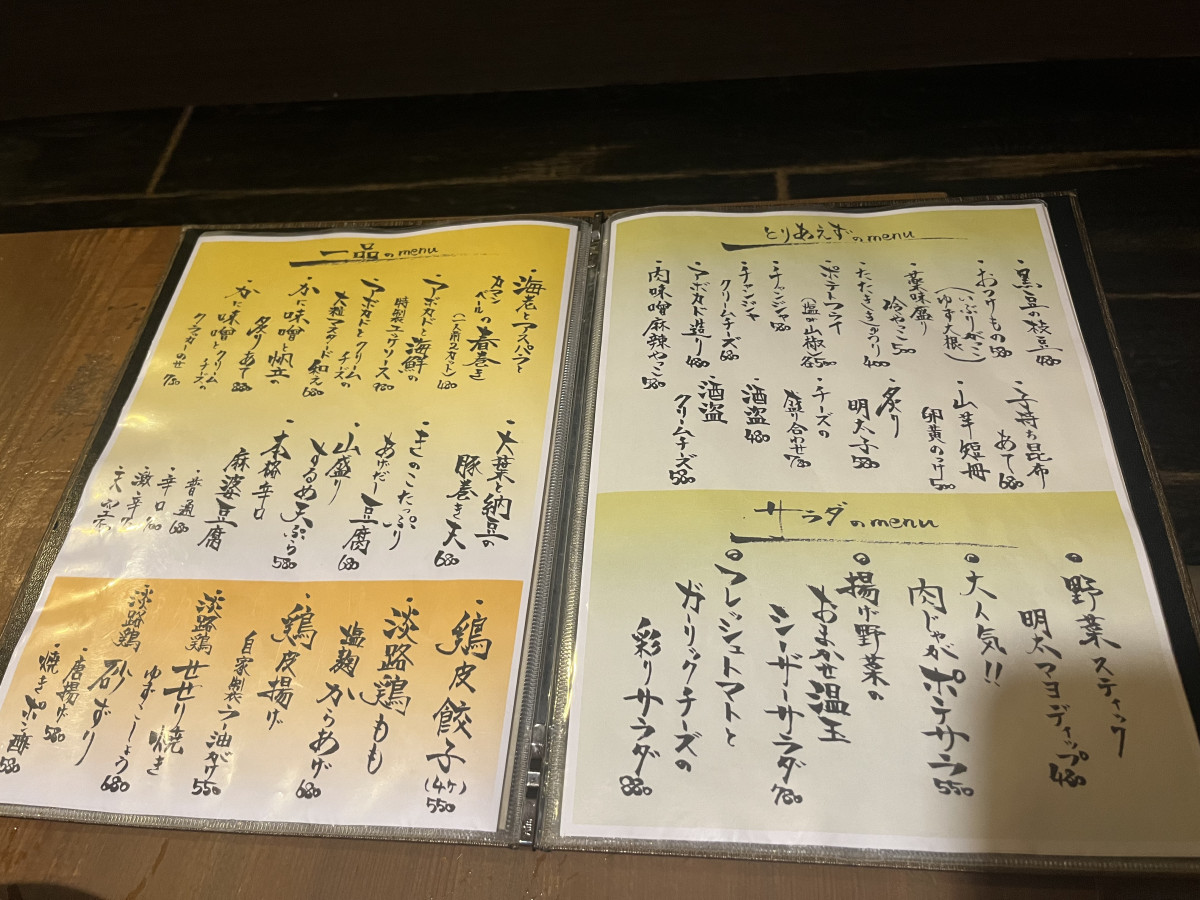 とりあえずのmenu
・黒豆の枝豆 480
・おつけもの 580
(いぶりがっこ
ゆず大根)
・薬味盛り
冷やっこ 500
・たたききゅうり 400
・ポテトフライ
(塩or山椒)各500
・チャンジャ 580
・チャンジャ
クリームチーズ 680
・アボカド造り 480
・肉味噌麻辣やっこ 580
・子持ち昆布
あて 680
・山芋短冊
卵黄のっけ 500
・炙り
明太子 580
・チーズの
盛り合わせ 780
・酒盗 480
・酒盗
クリームチーズ 580
サラダのmenu
・野菜スティック
明太マヨディップ 480
・大人気!!
肉じゃがポテサラ 550
・揚げ野菜の
おまかせ温玉
シーザーサラダ 780
・フレッシュトマトと
ガーリックチーズの
彩りサラダ 880
一品のmenu
・海老とアスパラと
カマンベールの春巻き
(一人前2カット) 480
・アボカドと海鮮の
特製ユッケソース 980
・アボカドとクリームチーズの
大粒マスタード和え 680
・かに味噌と帆立の
炙りあて 880
・かに味噌とクリームチーズの
クラッカーのせ 780
・大葉と納豆の
豚巻き天 680
・きのこたっぷり
あげだし豆腐 680
・山盛り
するめ天ぷら 580
・本格辛口
麻婆豆腐
・普通 680
・辛口 700
・激辛
・鶏皮餃子
(4ヶ) 550
・淡路鶏もも
塩麹からあげ 680
・鶏皮揚げ
自家製ラー油がけ 550
・淡路鶏せせり焼き
ゆずこしょう 680
・淡路鶏砂ずり
・唐揚げ 580
・焼きポン酢 580